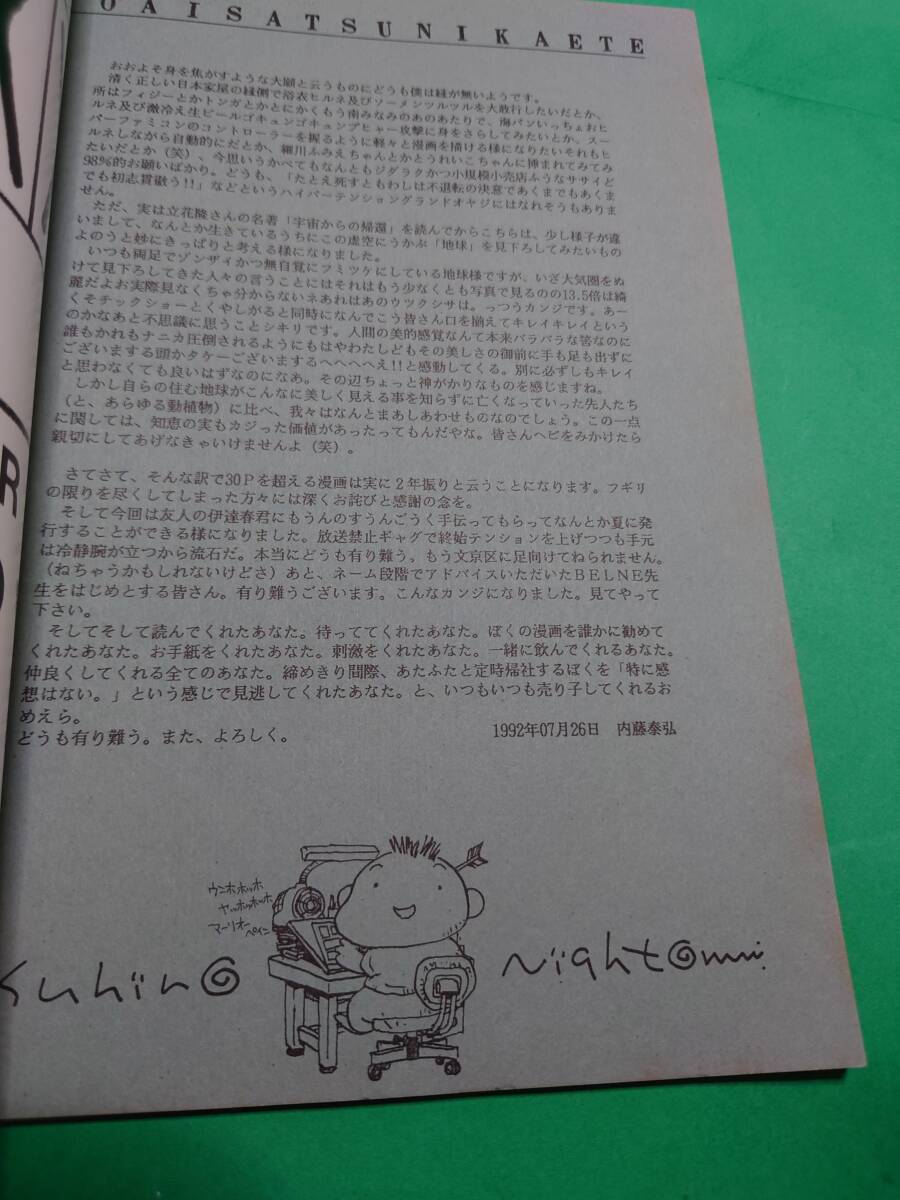 OAISATSUNIKAETE
おおよそ身を焦がすような大願と云うものにどうも僕は縁が無いようです。
清く正しい日本家屋の縁側で浴衣ヒルネ及びソーメンツルツルを大敢行したいだとか、
所はフィジーとかトンガとかとにかくもう南みなみのあのあたりで、海パンいっちょおヒ
ルネ及び激冷え生ビールゴキュンゴキュンプヒャー攻撃に身をさらしてみたいとか、スー
パーファミコンのコントローラーを握るように軽々と漫画を描ける様になりたいそれもヒ
ルネしながら自動的にだとか、細川ふみえちゃんとかうれいこちゃんに挿まれてみてみ
たいだとか（笑）、今思いうかべてもなんともジグラクかつ小規模小売店ふうなササイど
98%的お願いばかり。どうも、「たとえ死すともわしは不退転の決意であくまでもあくま
でも初志貫徹う!!」などというハイパーテンショングランドオヤジにはなれそうもありま
せん。
ただ、実は立花隆さんの名著「宇宙からの帰還」を読んでからこちらは、少し様子が違
いまして、なんとか生きているうちにこの虚空にうかぶ「地球」を見下ろしてみたいもの
よのうと妙にきっぱりと考える様になりました。
いつも両足でゾンザイかつ無自覚にフミツケにしている地球様ですが、いざ大気圏をぬ
けて見下ろしてきた人々の言うことにはそれはもう少なくとも写真で見るのの13.5倍は綺
麗だよお実際見なくちゃ分からないネあれはあのウツクシサは。っつうカンジです。あー
くそチックショーとくやしがると同時になんでこう皆さん口を揃えてキレイキレイという
のかなあと不思議に思うことシキリです。人間の美的感覚なんて本来バラバラな筈なのに
誰もかれもナニカ圧倒されるようにもはやわたしどもその美しさの御前に手も足も出ずに
ございまする頭かタケーございまするへへへへえ!!と感動してくる。別に必ずしもキレイ
と思わなくても良いはずなのになあ。その辺ちょっと神がかりなものを感じますね。
しかし自らの住む地球がこんなに美しく見える事を知らずに亡くなっていった先人たち
（と、あらゆる動植物）に比べ、我々はなんとまあしあわせものなのでしょう。この一点
に関しては、知恵の実もカジった価値があったってもんだやな。皆さんヘビをみかけたら
親切にしてあげなきゃいけませんよ（笑）。
さてさて、そんな訳で30Pを超える漫画は実に２年振りと云うことになります。フギリ
の限りを尽くしてしまった方々には深くお詫びと感謝の念を。
そして今回は友人の伊達春君にもうんのすうんごうく手伝ってもらってなんとか夏に発
行することができる様になりました。放送禁止ギャグで終始テンションを上げつつも手元
は冷静腕が立つから流石だ。本当にどうも有り難う。もう文京区に足向けてねられません。
（ねちゃうかもしれないけどさ）あと、ネーム段階でアドバイスいただいたBELNE先
生をはじめとする皆さん。有り難うございます。こんなカンジになりました。見てやって
下さい。
そしてそして読んでくれたあなた。待っててくれたあなた。ぼくの漫画を誰かに勧めて
くれたあなた。お手紙をくれたあなた。刺激をくれたあなた。一緒に飲んでくれるあなた。
仲良くしてくれる全てのあなた。締めきり間際、あたふたと定時帰社するぼくを「特に感
想はない。」という感じで見逃してくれたあなた。と、いつもいつも売り子してくれるお
めえら。
どうも有り難う。また、よろしく。
1992年07月26日　内藤泰弘
ウンホホッホ
ヤッホホッホ
マーリオー
ペイン
Night
R